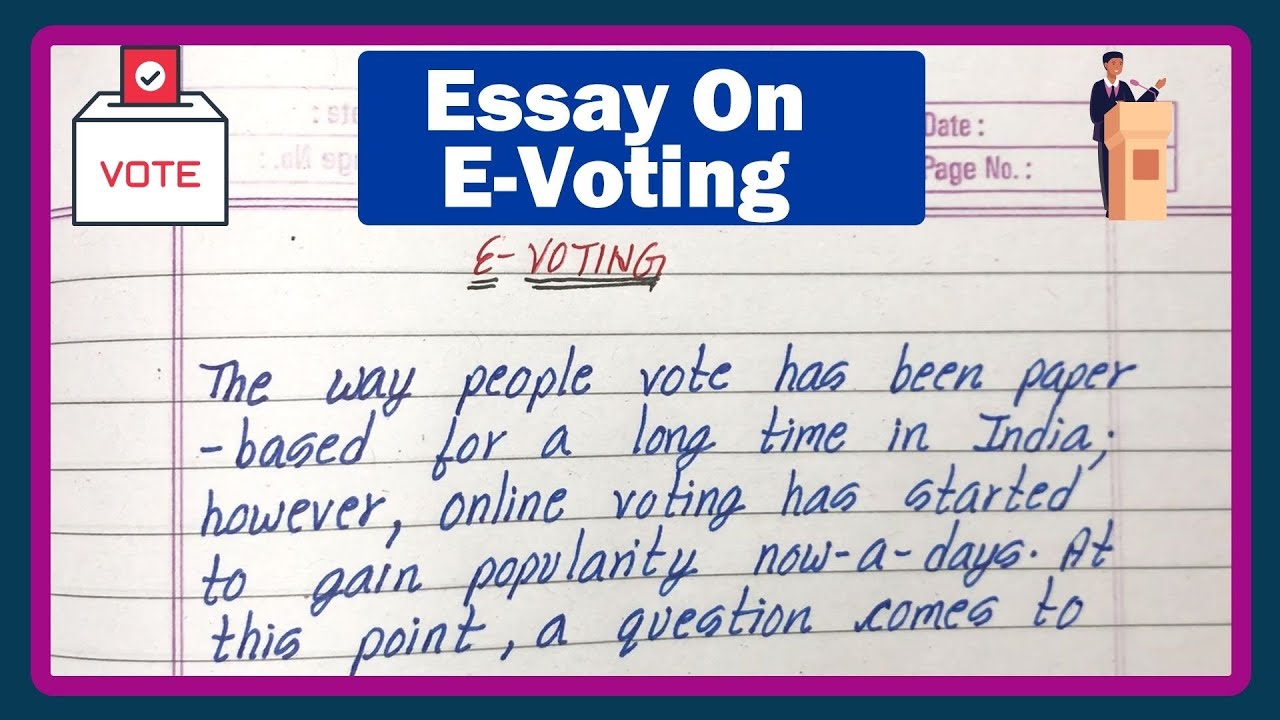 VOTE
Essay On
E-Voting
Date :
Page No. :
E-VOTING
The way people vote has been paper
-based for a long time in India;
however, online voting has started
to gain popularity now-a-days. At
this point, a question comes to